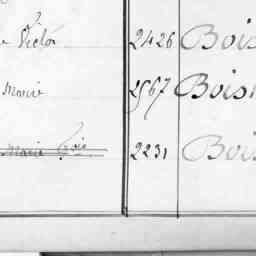 e Victor 2426 Bois
Marie 2567 Bois
Marie 2231 Bois